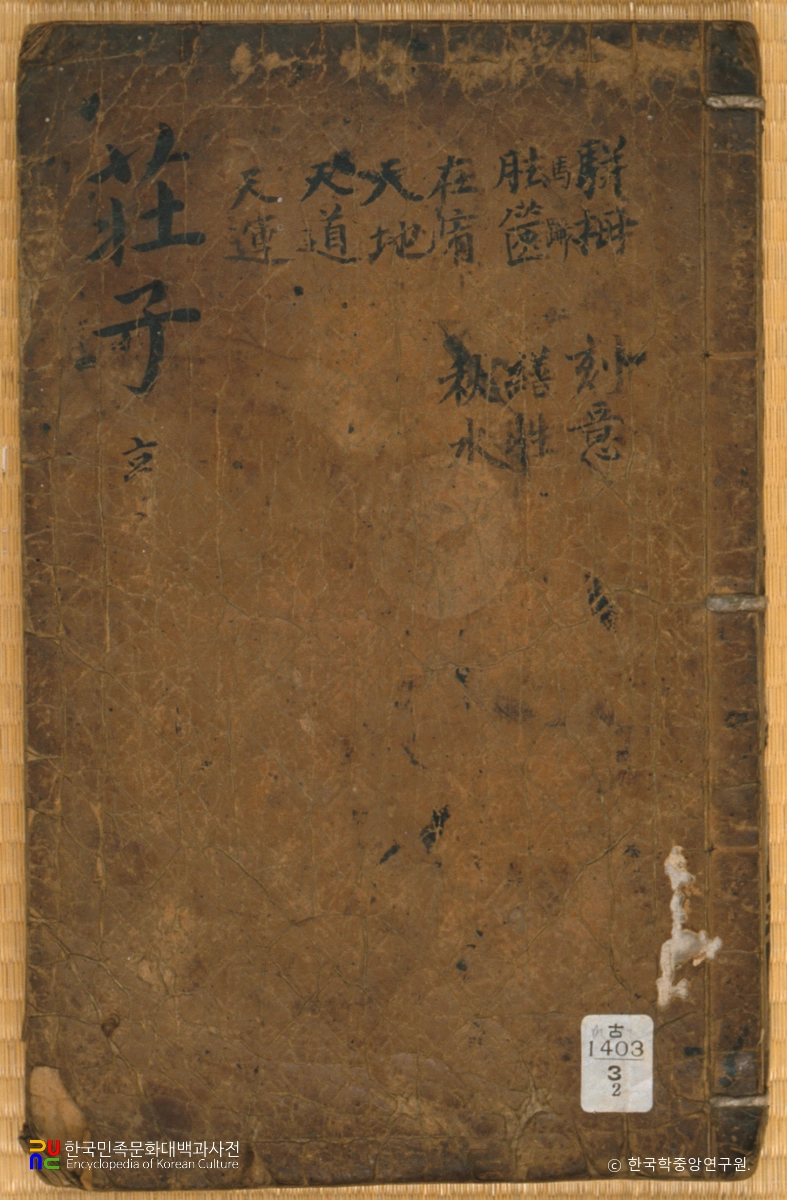 駢拇
馬蹄
胠篋
在宥
天地
天道
天運
刻意
繕性
秋水
莊子
古
1403
3
2
한국민족문화대백과사전
Encyclopedia of Korean Culture
© 한국학중앙연구원